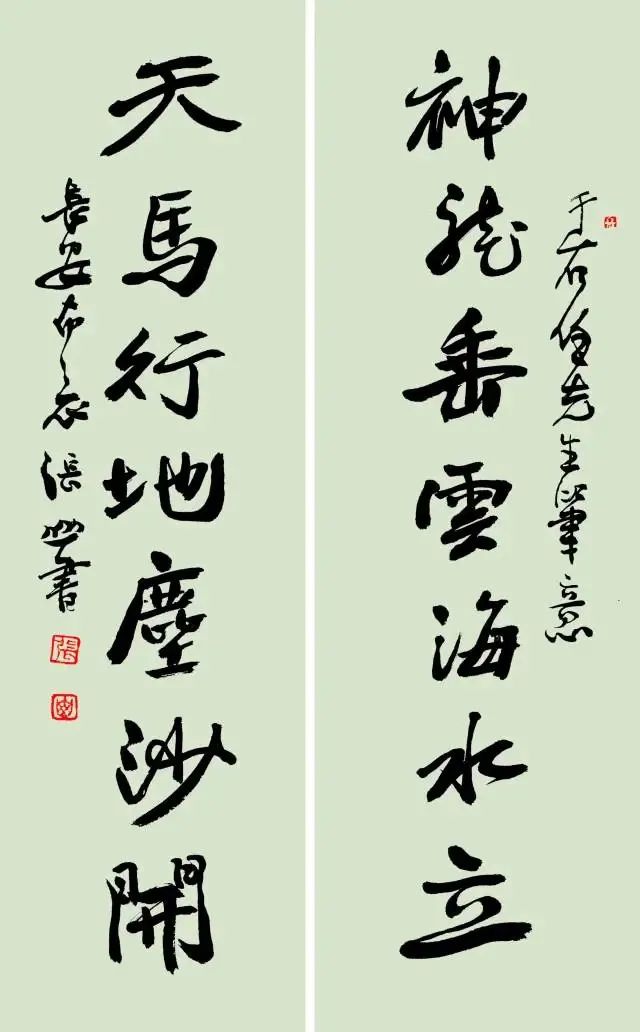 于右任先生筆意
神龍垂雲海水立
天馬行地塵沙開
長安布衣張書
張